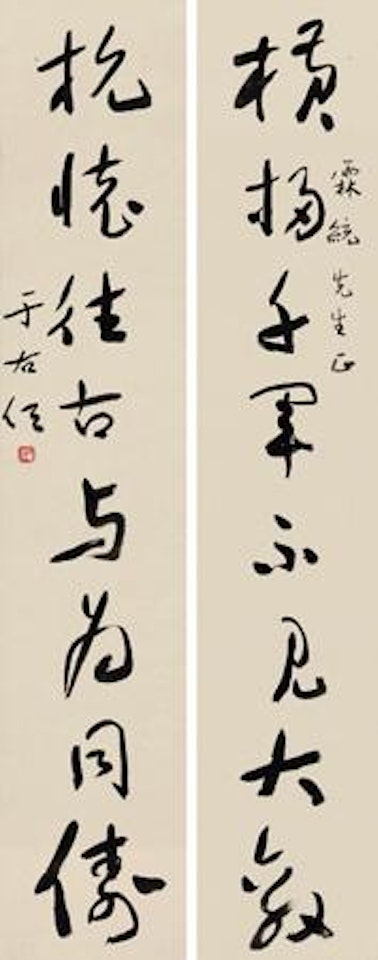 横扫千军不见大敌
霖统先生正
抗怀往古与为同俦
于右任